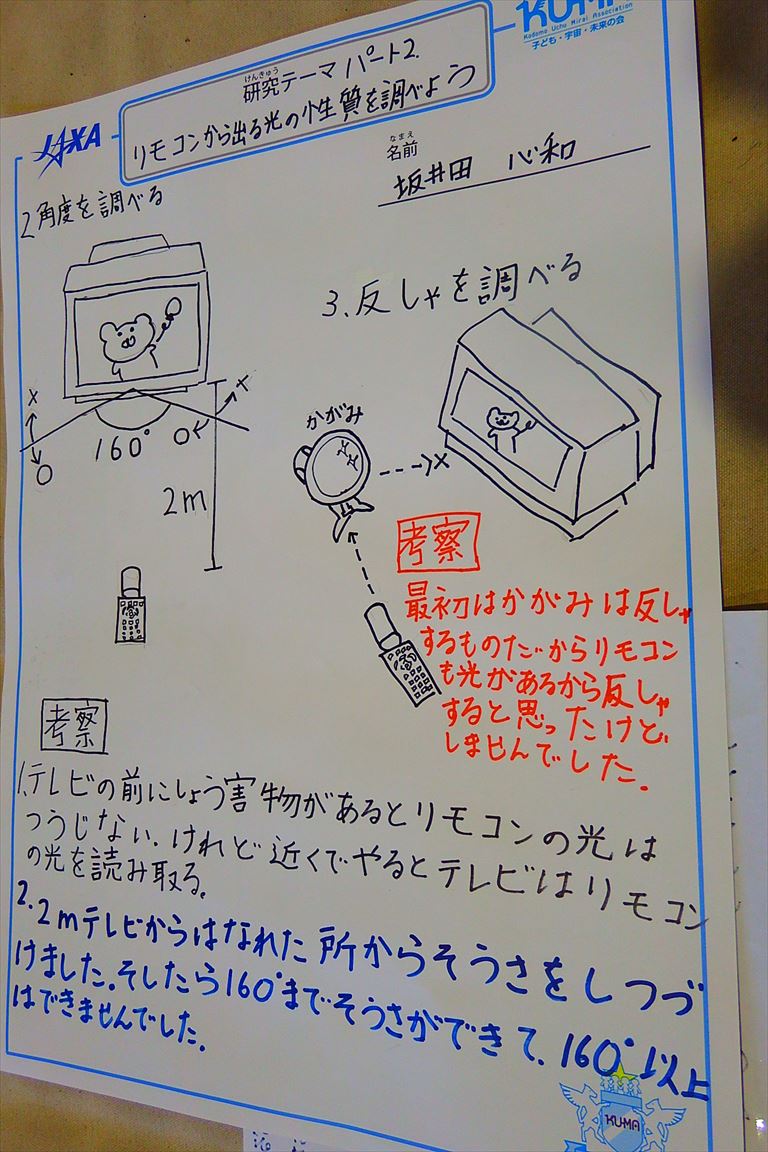 KUMA
Kodomo Uchu Mirai Association
子ども・宇宙・未来の会
JAXA
けんきゅう
研究テーマ パート2.
リモコンから出る光の性質を調べよう
なまえ
名前
坂井田 心和
2.角度を調べる
3.反しゃを調べる
x
O
160°
O
x
2m
かがみ
x
考察
最初はかがみは反しゃ
するものだからリモコン
も光があるから反しゃ
すると思ったけど、
しませんでした.
考察
1.テレビの前にしょう害物があるとリモコンの光は
つうじない.けれど近くでやるとテレビはリモコン
の光を読み取る。
2.2mテレビからはなれた所からそうさをしつづ
けました.そしたら160°までそうさができて、160°以上
はできませんでした.
KU-MA